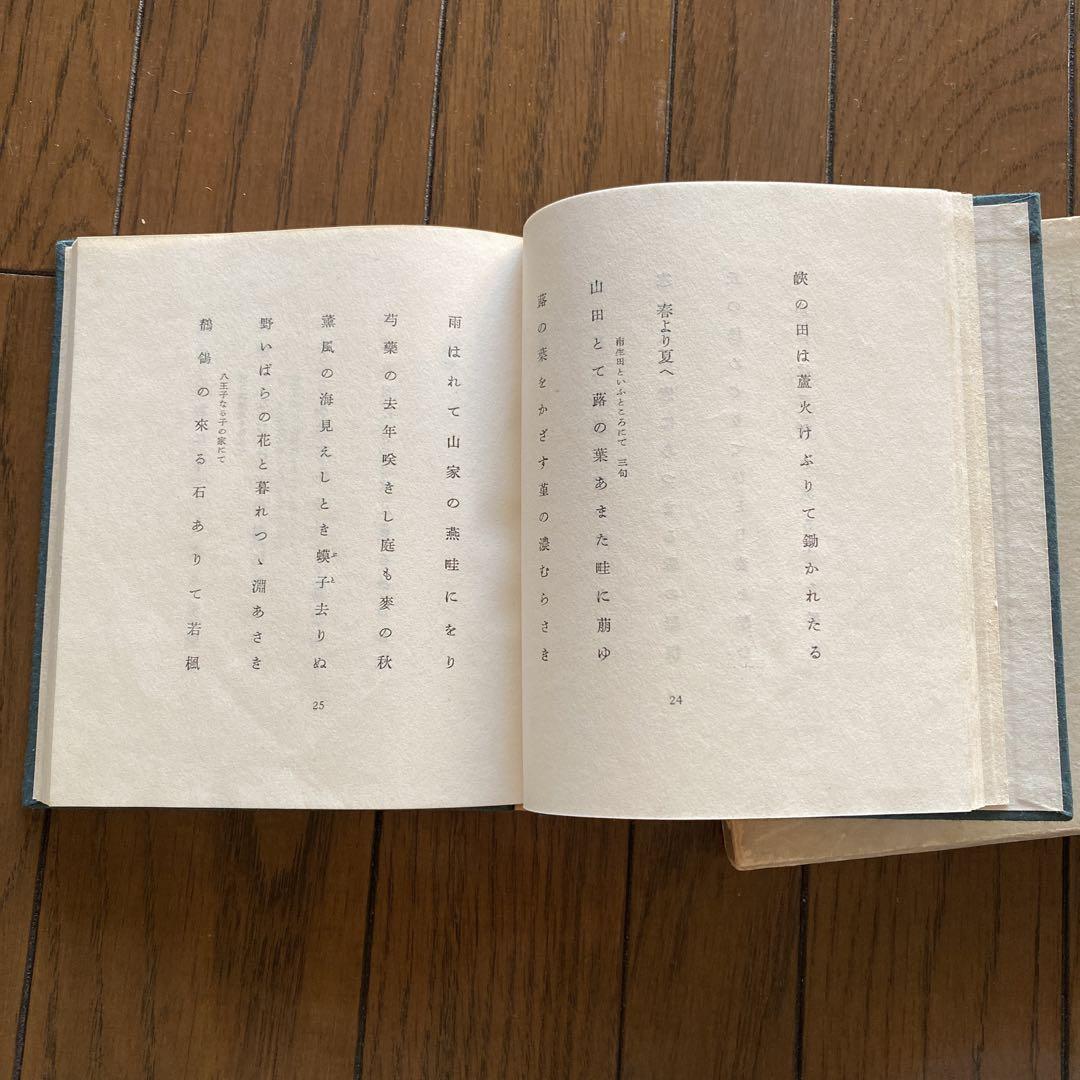 峽の田は蘆火けぶりて鋤かれたる
春より夏へ
南生田といふところにて 三句
山田とて蕗の葉あまた畦に萠ゆ
蕗の葉をかざす菫の濃むらさき
24
雨はれて山家の燕畦にをり
芍藥の去年咲きし庭も麥の秋
薰風の海見えしとき蟆子去りぬ
ぶと
野いばらの花と暮れつゝ淵あさき
八王子なる子の家にて
鶺鴒の來る石ありて若楓
25